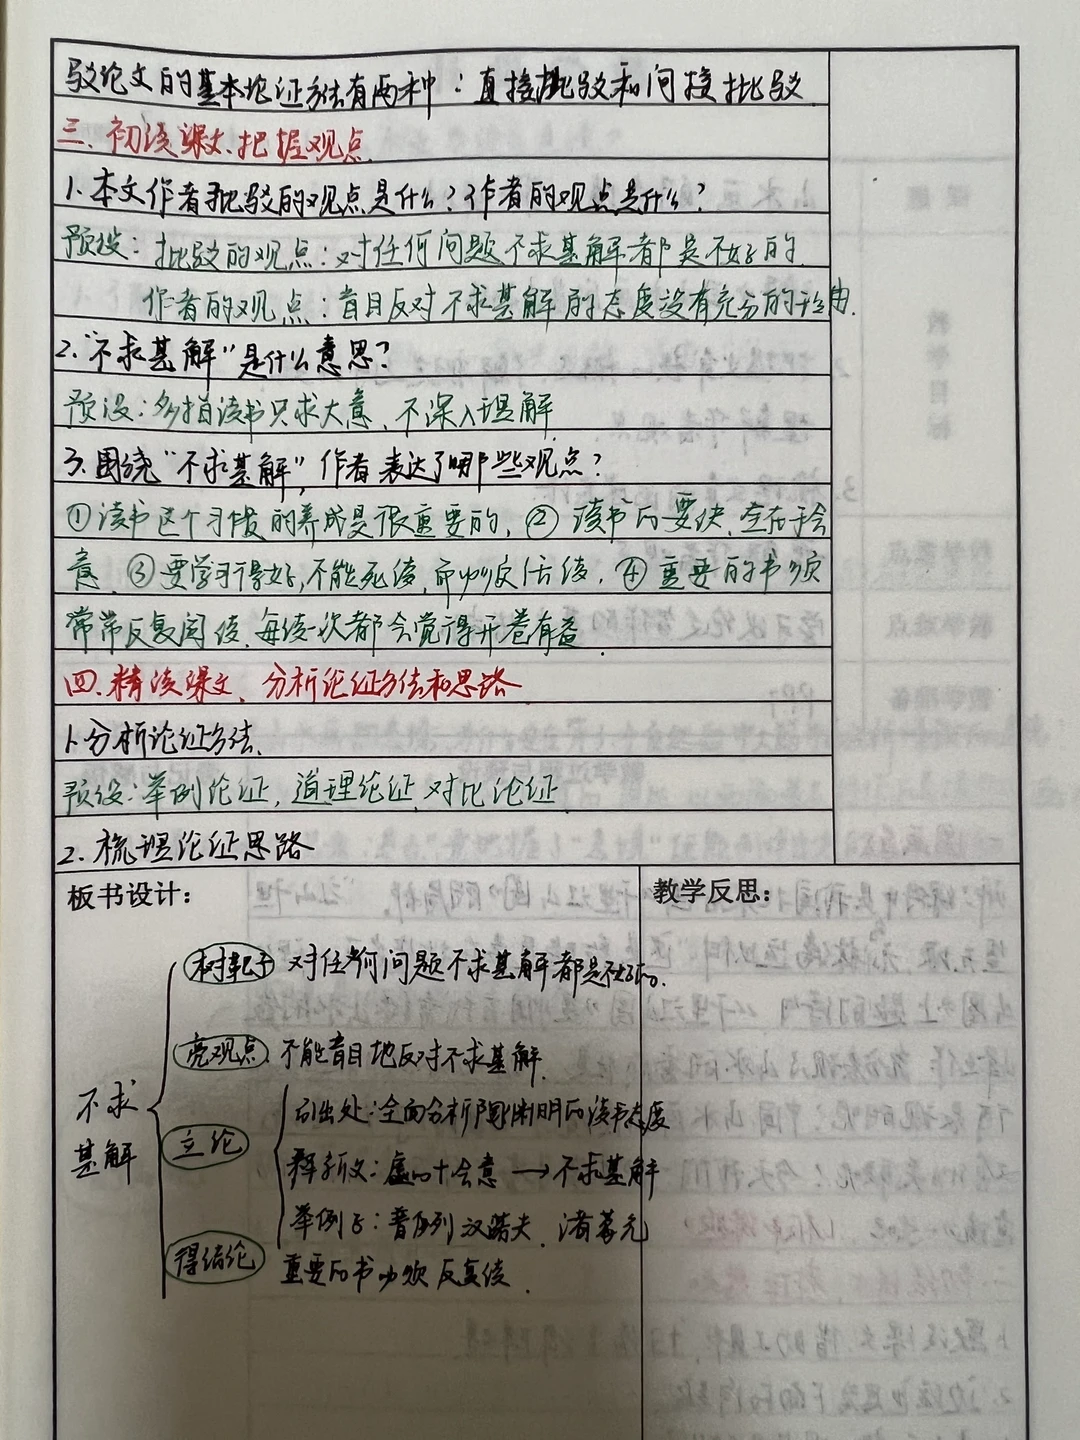 驳论文的基本论证方法有两种：直接批驳和间接批驳
三、初读课文、把握观点
1.本文作者批驳的观点是什么？作者的观点是什么？
预设：批驳的观点：对任何问题不求甚解都是不好的.
作者的观点：盲目反对不求甚解的态度没有充分的理由.
2."不求甚解"是什么意思？
预设：多指读书只求大意、不深入理解
3.围绕"不求甚解"，作者表达了哪些观点？
①读书这个习惯的养成是很重要的，②读书的要诀，在于会
意 ③要学习得好，不能死读，而必须活读，④重要的书必须
常常反复阅读，每读一次都会觉得开卷有益
四、精读课文、分析论证方法和思路
1.分析论证方法、
预设：举例论证，道理论证，对比论证
2.梳理论证思路
板书设计：
教学反思：
不求
甚解
树靶子 对任何问题不求甚解都是不好的。
亮观点 不能盲目地反对不求甚解.
立论
引出处：全面分析陶渊明的读书态度
释新义：虚心+会意→不求甚解
举例子：普列汉诺夫、诸葛亮
得结论 重要的书必须反复读.